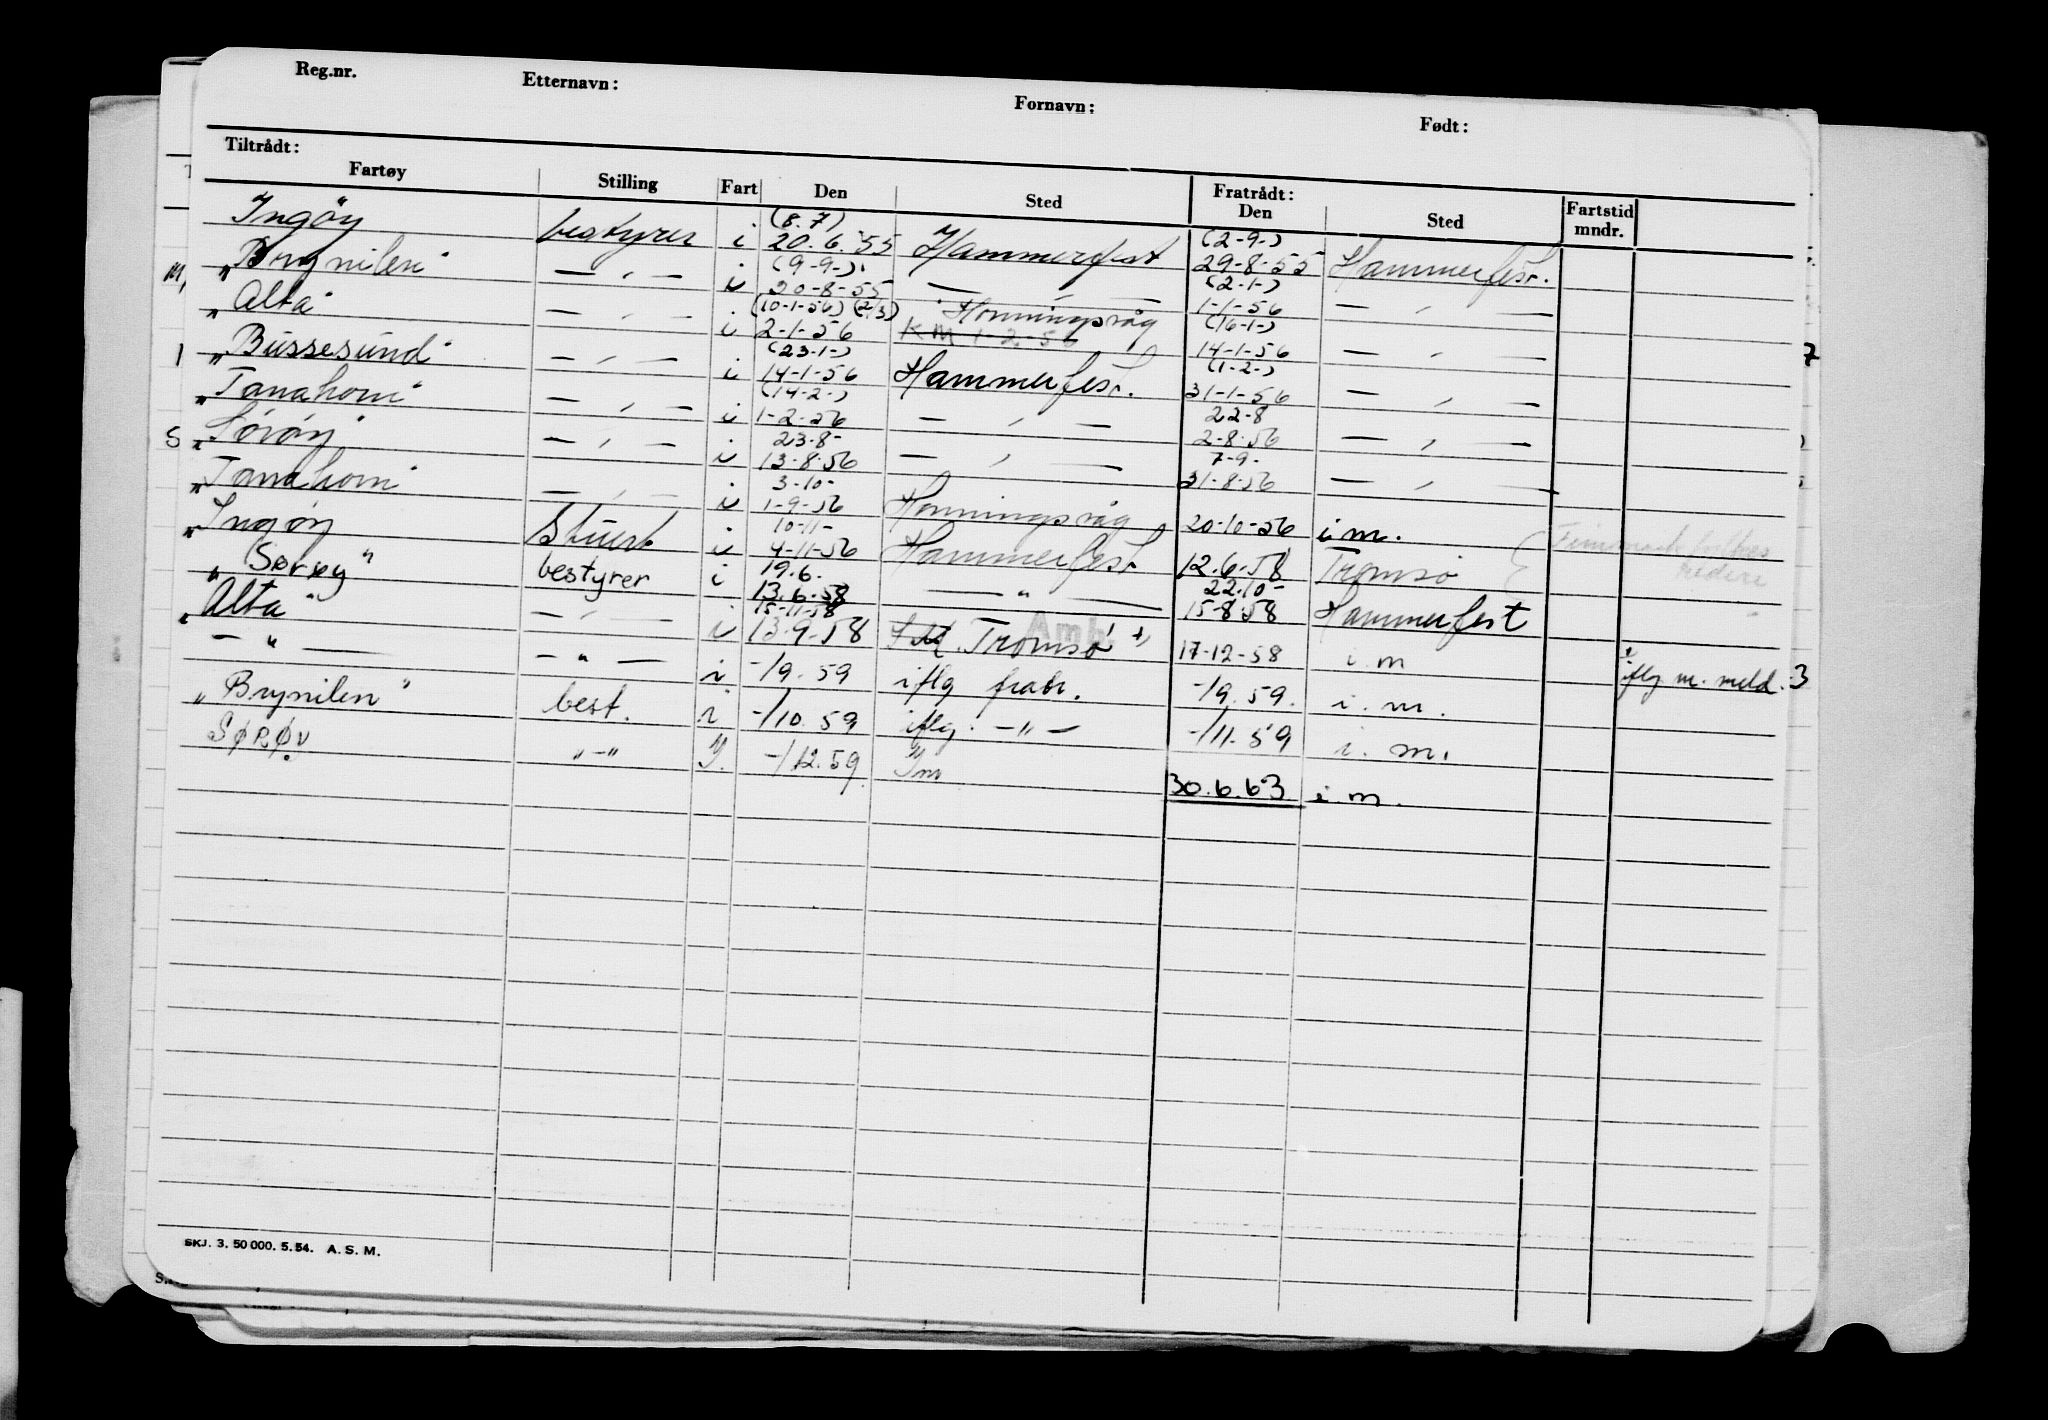 Reg.nr. Etternavn: Fornavn: Født:
Tiltrådt: Fratrådt:
Fartøy Stilling Fart Den Sted Den Sted Fartstid mndr.
(8.7) (2-9-)
Ingöy bestyrer i 20.6.55 Hammerfest 29-8-55 Hammerfest.
(9-9-) (2-1-)
"Brynilen" — " — i 20-8-55 — " — 1-1-56 — " —
(10-1-56) (2/3) (16-1-)
"Alta" — " — i 2-1-56 Honningsvåg KM 1-2-56 14-1-56 — " —
(23-1-) (1-2-)
"Bussesund" — " — i 14-1-56 Hammerfest. 31-1-56 — " —
(14-2-) 22-8
"Tanahorn" — " — i 1-2-56 — " — 2-8-56 — " —
23-8- 7-9-
"Söröy" — " — i 13-8-56 — " — 31-8-56 — " —
3-10-
"Tanahorn" — " — i 1-9-56 Honningsvåg 20-10-56 i m.
10-11-
"Ingöy Stuert i 4-11-56 Hammerfest 12.6.58 Tromsø
19.6. 22.10-
"Sørøy" bestyrer i 13.6.58 — " — 15-8-58 Hammerfest
15-11-58
"Alta" — " — i 13-9-58 Tromsø 17-12-58 i. m iflg m. meld.
— " — — " — i -/9.59 iflg frabr. -/9.59. i. m.
"Brynilen" best. i -/10.59 iflg. — " — -/11.59 i. m.
SØRØY " — " Y. -/12.59 Im 30.6.63 i m.
SKJ. 3. 50 000. 5. 54. A. S. M.